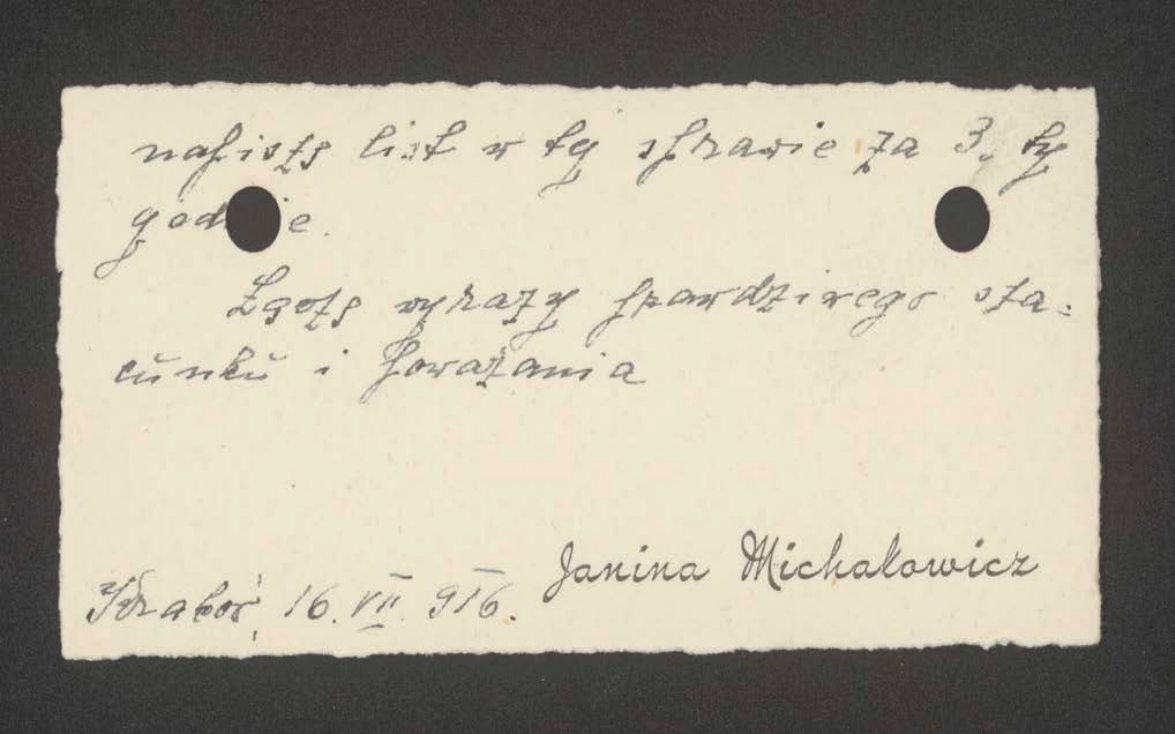 napiszę list w tej sprawie za 3. ty
godnie.
Łączę wyrazy prawdziwego sza-
cunku i poważania
Janina Michałowicz
Kraków, 16. VII 916.